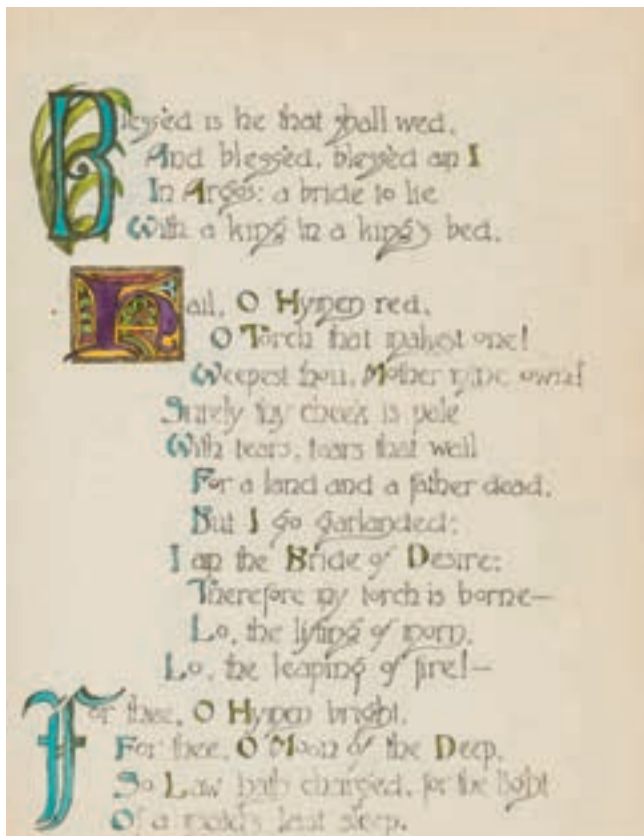 Blessèd is he that shall wed,
And blessèd, blessèd am I
In Argos: a bride to lie
With a king in a king's bed.
Hail, O Hymen red,
O Torch that makest one!
Weepest thou, Mother mine own?
Surely thy cheek is pale
With tears, tears that wail
For a land and a father dead.
But I go garlanded:
I am the Bride of Desire:
Therefore my torch is borne—
Lo, the lifting of morn,
Lo, the leaping of fire!—
For thee, O Hymen bright,
For thee, O Moon of the Deep,
So Law hath charged, for the light
Of a maid's last sleep.